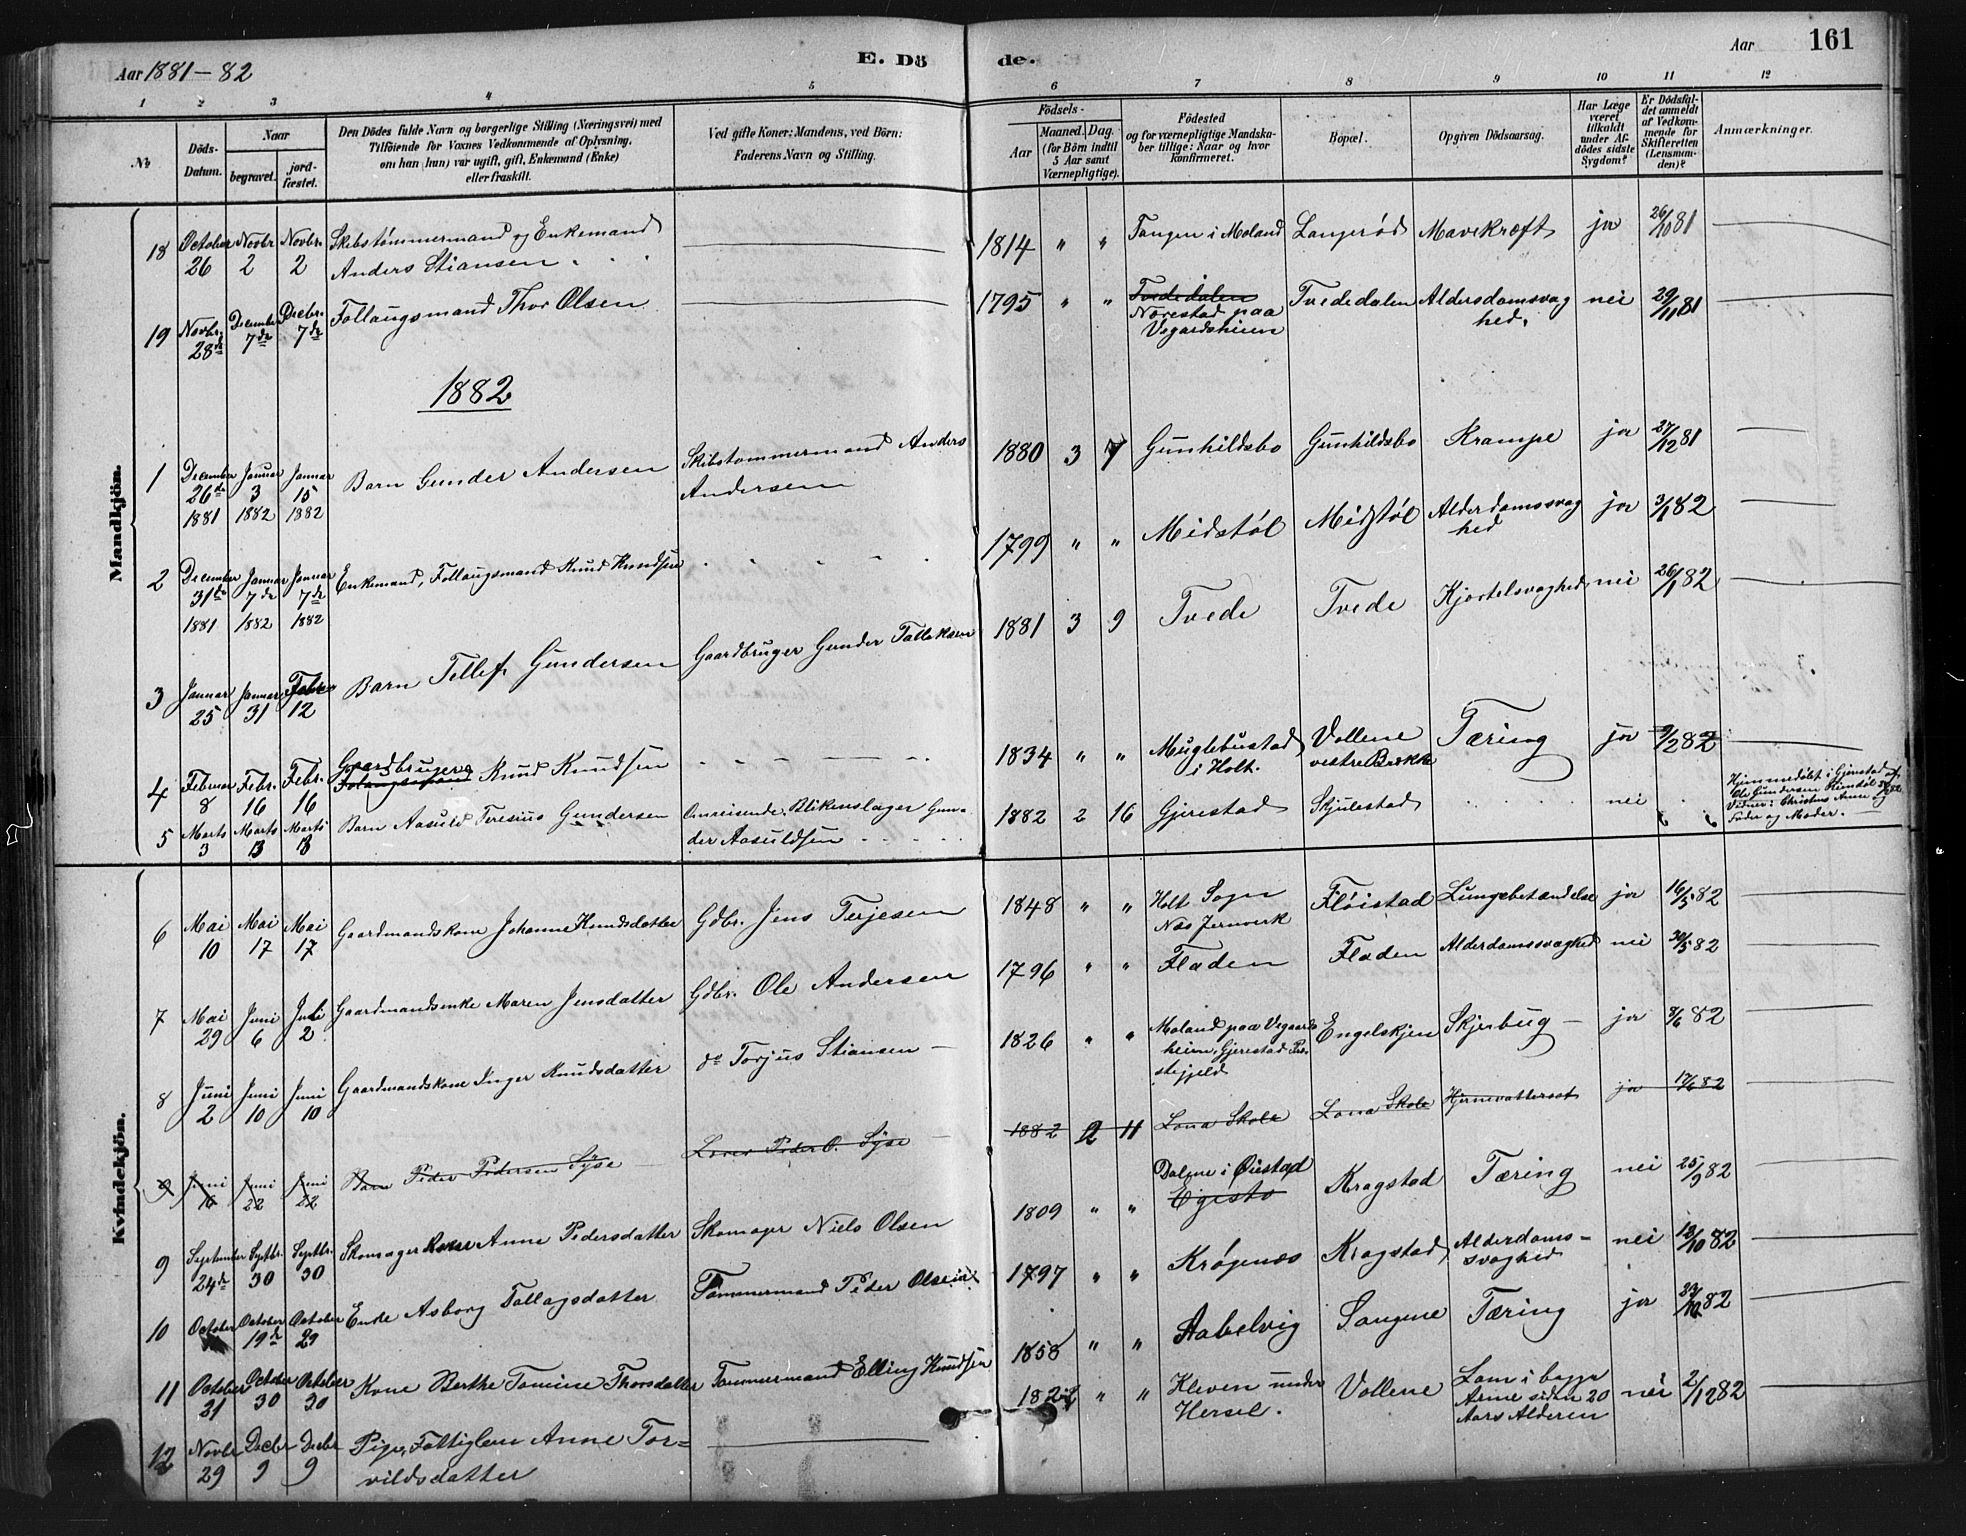 Aar 1881-82
E. Dö
de.
Aar
161
1 2 3 4 5 6 7 8 9 10 11 12
No
Döds-Datum.
Naar
begravet.
jord-fæstet.
Den Dödes fulde Navn og borgerlige Stilling (Næringsvei) med
Tilföiende for Voxnes Vedkommende af Oplysning,
om han (hun) var ugift, gift, Enkemand (Enke)
eller fraskilt.
Ved gifte Koner: Mandens, ved Börn:
Faderens Navn og Stilling.
Födsels-
Aar
Maaned. Dag.
(for Börn indtil
5 Aar samt
Værnepligtige).
Födested
og for værnepligtige Mandska-
ber tillige: Naar og hvor
konfirmeret.
Bopæl.
Opgiven Dödsaarsag.
Har Læge
været
tilkaldt
under Af-
dödes sidste
Sygdom?
Er Dödsfal-
det anmeldt
af Vedkom-
mende for
Skifteretten
(Lensman-
den)?
Anmærkninger.
Mandkjön.
18 October 26 Novbr 2 Novbr. 2 Skibstømmermand og Enkemand
Anders Stiansen
1814 " " Tangen i Moland Langerød Mavekræft ja 26/10 81
19 Novbr. 28de December 7de Decbr. 7de Follaugsmand Thor Olsen
1795 " " Tvededalen
Nærestad paa
Vegardsheien Tvededalen Aldersdomsvag
hed. nei 29/11 81
1882
1 December 26de 1881 Januar 3 1882 Januar 15 1882 Barn Gunder Andersen Skibstømmermand Anders
Andersen
1880 3 7 Gunhildsbo Gunhildsbo Krampe ja 27/12 81
2 December 31de 1881 Januar 7de 1882 Januar 7de 1882 Enkemand, Follaugsmand Knud Knudsen
1799 " " Midstøl Midstøl Alderdomssvag
hed ja 3/1 82
3 Januar 25 Januar 31 Febr. 12 Barn Tellef Gundersen Gaardbruger Gunder Tallaksen
1881 3 9 Tvede Tvede Kjertelsvaghed nei 26/1 82
4 Februar 8 Febr. 16 Febr. 16 Gaardbruger
Follaugsmand Knud Knudsen
1834 " " Muglebustad
i Holt. Vollene
vestre Brække Tæring ja 9/2 82
5 Marts 3 Marts 13 Marts 18 Barn Aasuld Teresius Gundersen Omreisende Blikenslager Gun-
der Aasuldsen
1882 2 16 Gjerestad Skjulestad nei
Hjemmedøbt i Gjerestad af
Ole Gundersen
Fader og Moder.
Kvindekjön.
6 Mai 10 Mai 17 Mai 17 Gaardmandskone Johanne Knudsdatter Gdbr. Jens Terjesen
1848 " " Holt Sogn
Næs Jernverk Fløistad Lungebetændelse ja 16/5 82
7 Mai 29 Juni 6 Juli 2 Gaardmandsenke Maren Jensdatter Gdbr. Ole Andersen
1796 " " Fladen Fladen Alderdomssvaghed nei 30/5 82
8 Juni 2 Juni 10 Juni 10 Gaardmandskone Inger Knudsdatter do Torjus Stiansen
1826 " " Moland paa Vegaards
heien, Gjerestad Præ-
stegjeld Engelskjøn Skjørbug ja 8/6 82
9 Juni 16 Juni 22 Juni 22 Barn Peder Pedersen Syse Lærer Peder O. Syse
1882 2 11 Lona Skole Lona Skole Hjernevattersot ja 17/6 82
9 September 24de Septbr. 30 Septbr. 30 Skomagerkone Anne Pedersdatter Skomager Niels Olsen
1809 " " Dalene i Øiestad
Kragstad Tæring nei 25/9 82
10 October October 19de October 29 Enke Asborg Tallagsdatter Tømmermand Peder Olsen
1797 " " Krøgenæs Kragstad Alderdoms-
svaghed nei 12/10 82
11 October 21 October 30 October 30 Kone Berthe Tomine Thorsdatter Tømmermand Elling Knudsen
1858 " " Aabelvig Sangene Tæring ja 23/10 82
12 Novbr 29 Decbr 9 Decbr 9 Pige, Fattiglem Anne Tor-
vildsdatter
182 " " Kleven under
Hersel. Vollene Lam i begge
Arme siden 20
Aars Alderen nei 2/12 82